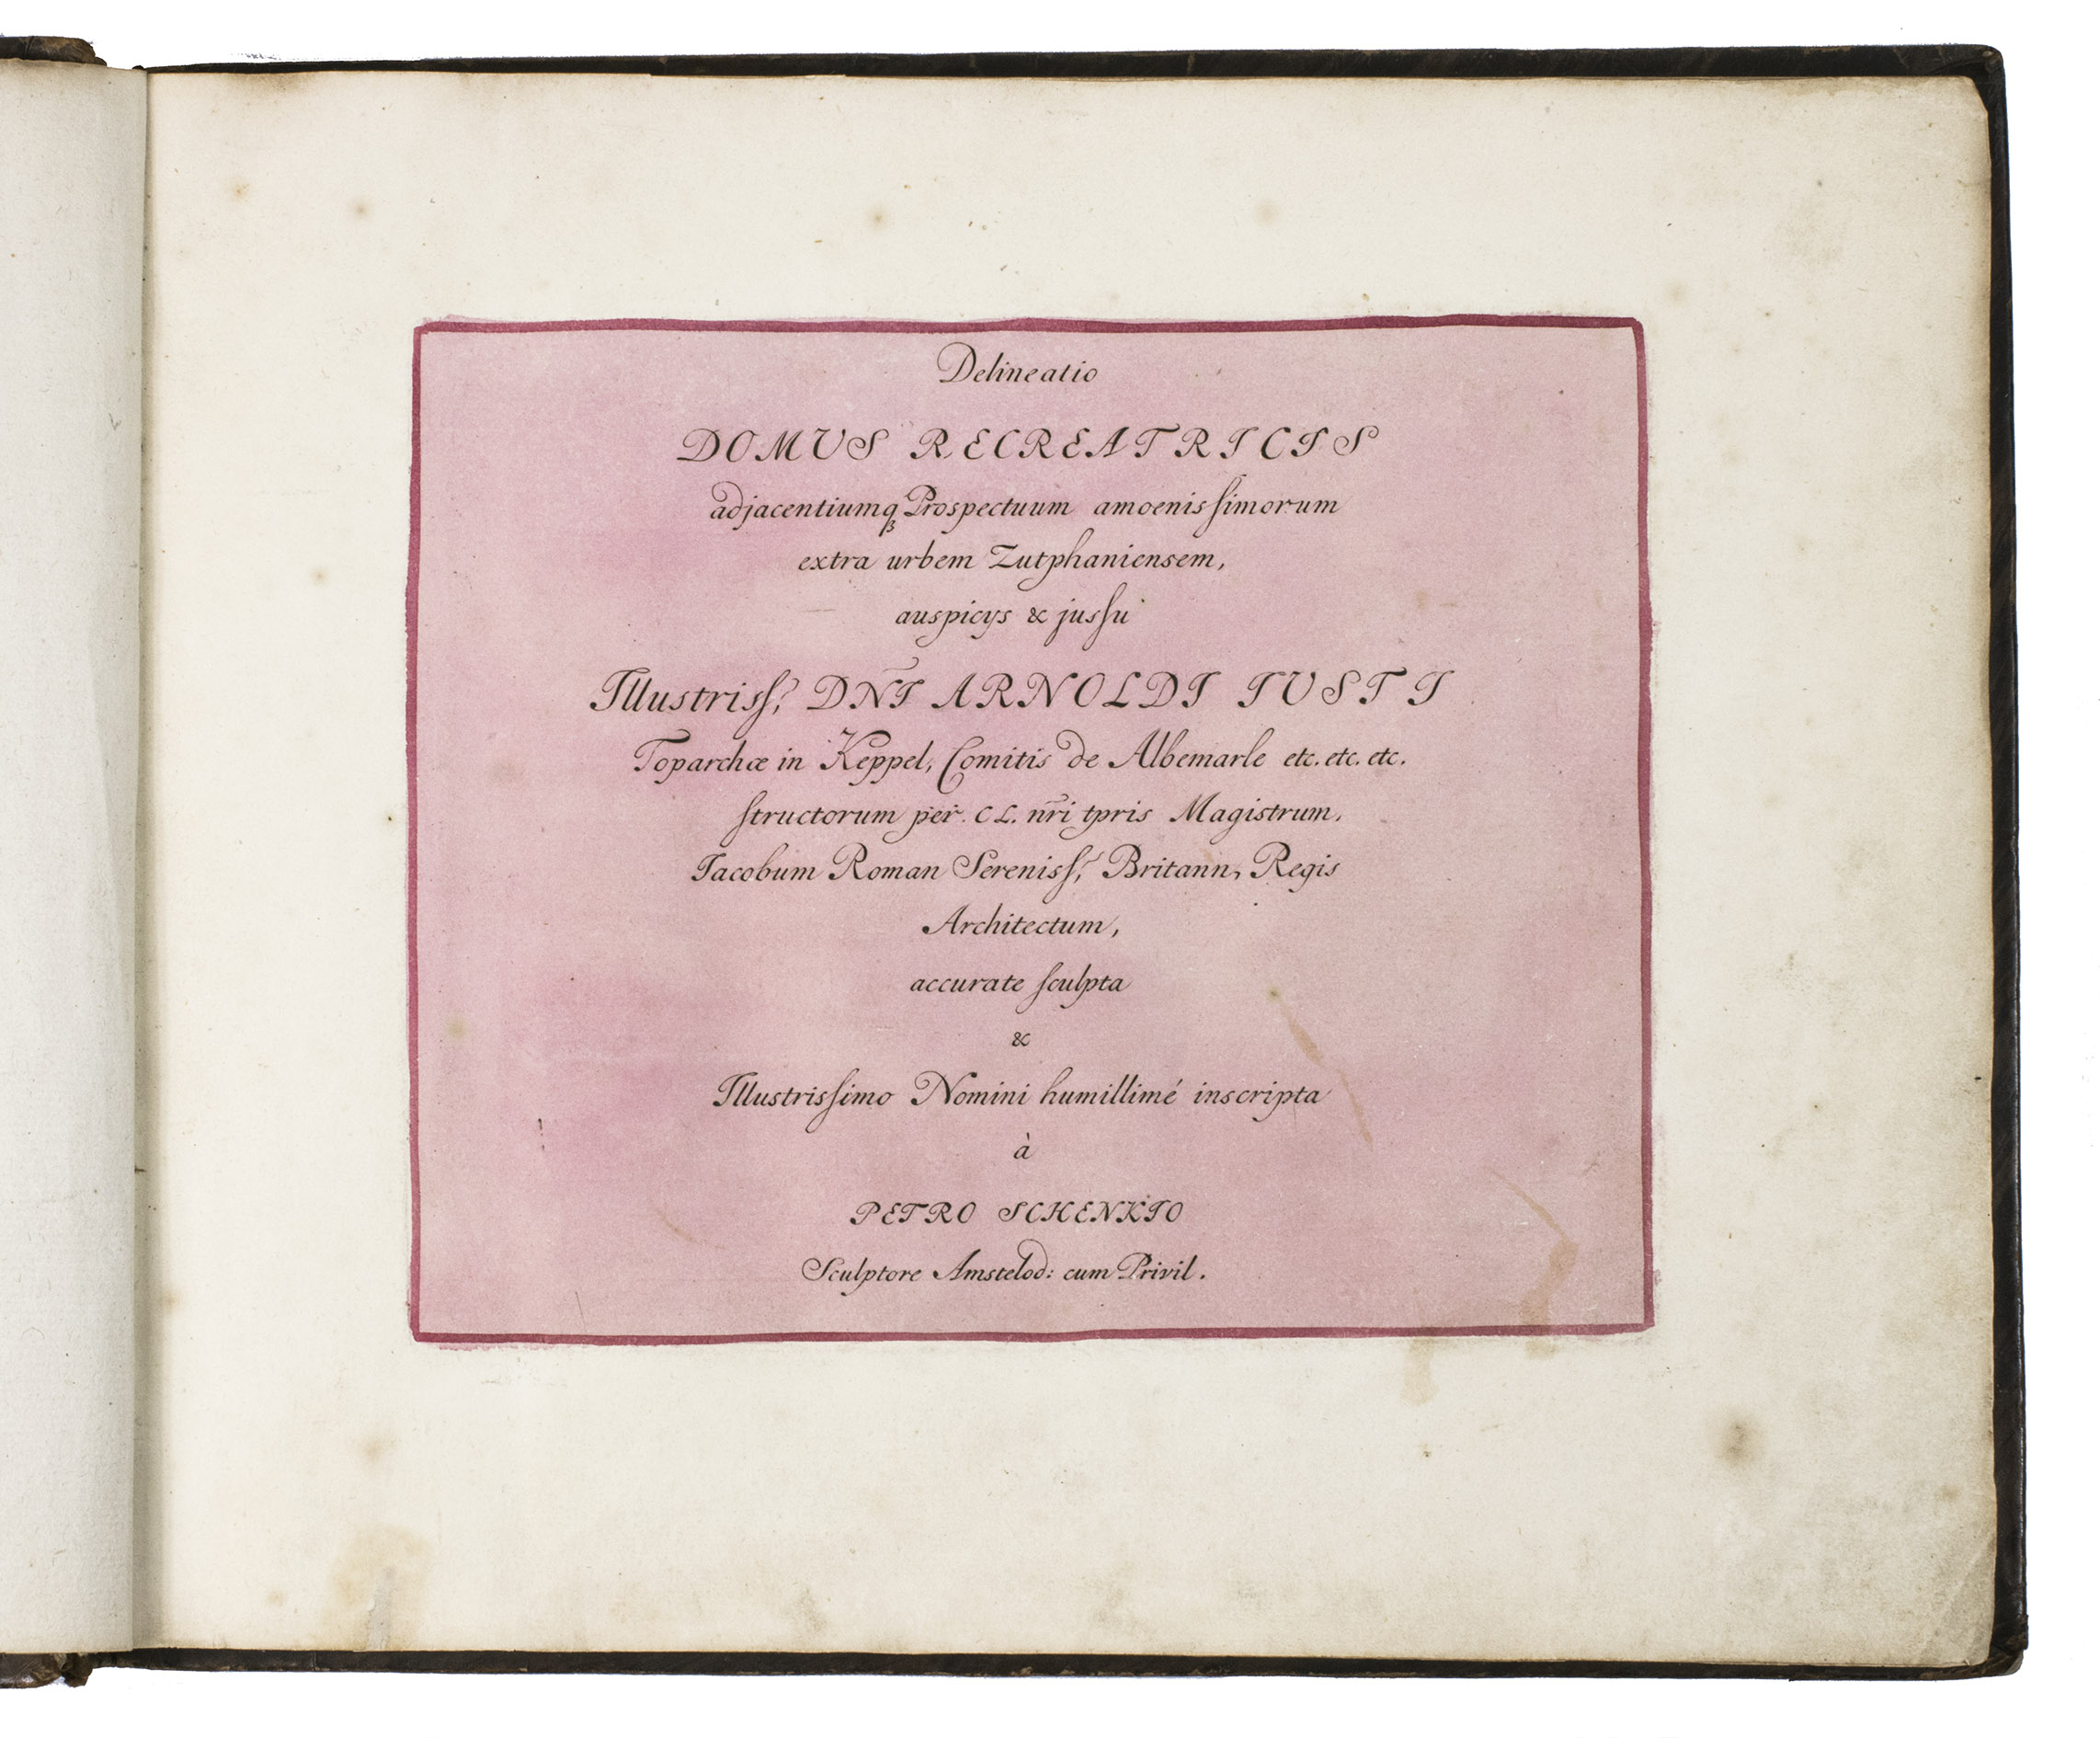 Delineatio
DOMUS RECREATRICIS
adjacentiumqꝫ Prospectuum amoenisſimorum
extra urbem Zutphaniensem,
auspicys & jusſu
Illustrisſ.ⁱ DÑI ARNOLDI IUSTI
Toparchæ in Keppel, Comitis de Albemarle etc. etc. etc.
ſtructorum per. CL. nr̄i tpris Magistrum,
Iacobum Roman Serenisſ.ⁱ Britann, Regis
Architectum,
accurate ſculpta
&
Illustrisſimo Nomini humillimé inscripta
à
PETRO SCHENKIO
Sculptore Amstelod: cum Privil.